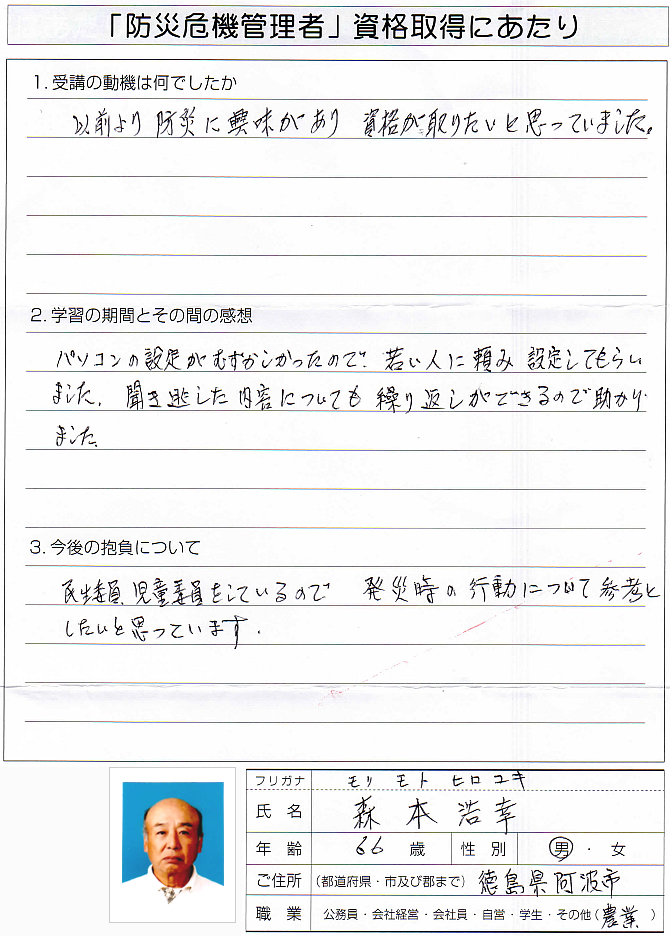 「防災危機管理者」資格取得にあたり
1. 受講の動機は何でしたか
以前より防災に興味があり 資格が取りたいと思っていました。
2. 学習の期間とその間の感想
パソコンの設定がむずかしかったので、若い人に頼み設定してもらい
ました。聞き逃した内容についても繰り返しができるので助かり
ました。
3. 今後の抱負について
民生委員、児童委員をしているので 発災時の行動について参考と
したいと思っています。
フリガナ モリ モト ヒロユキ
氏 名 森 本 浩 幸
年 齢 66 歳 性 別 男・女
ご住所 (都道府県・市及び郡まで) 徳島県阿波市
職 業 公務員・会社経営・会社員・自営・学生・その他(農業)